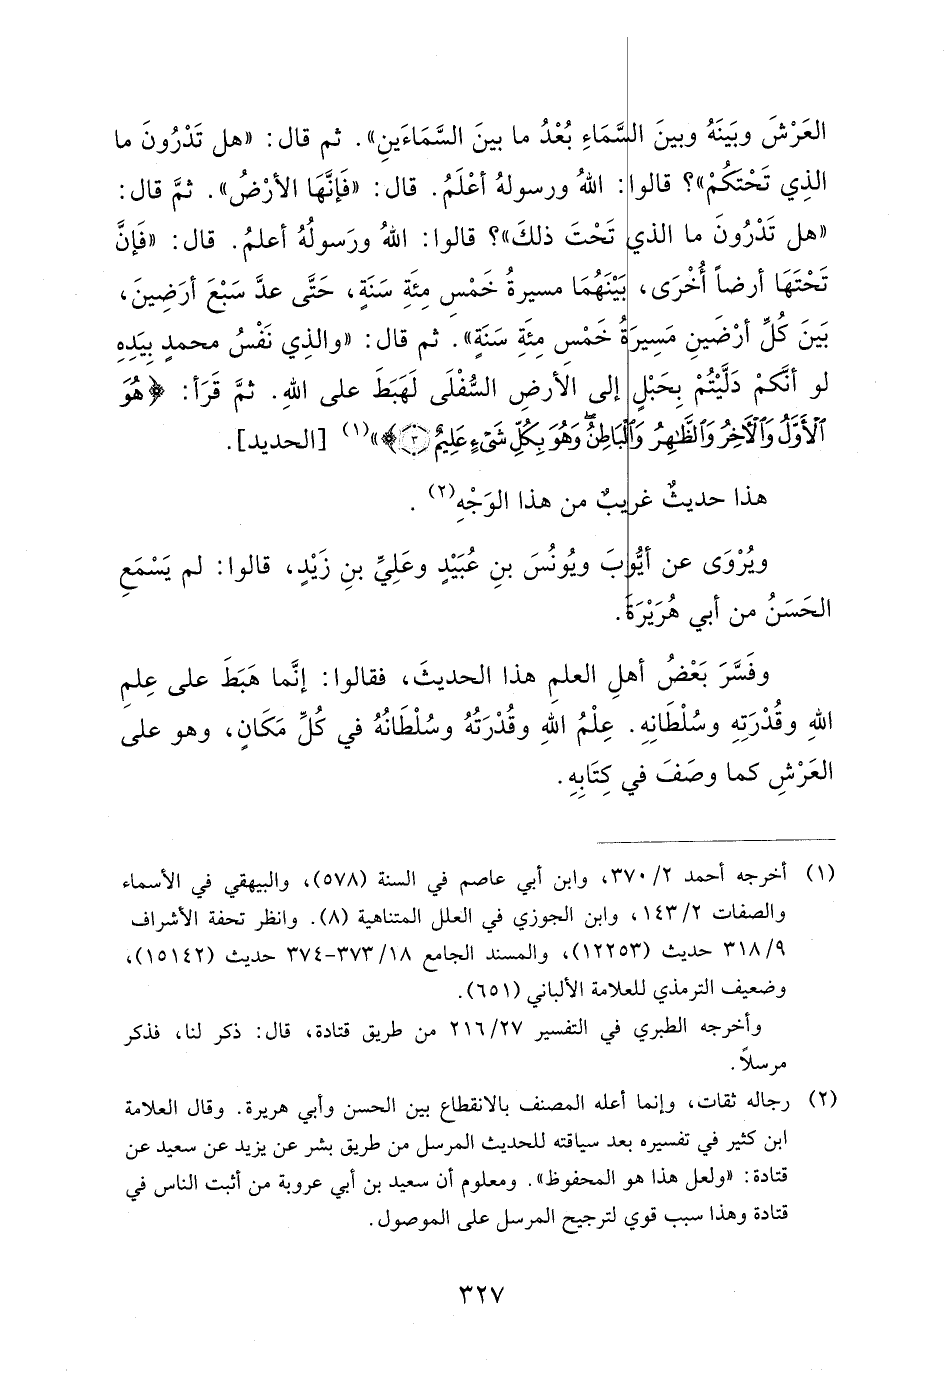 العَرْشَ وبَينَهُ وبينَ السَّمَاءِ بُعْدُ ما بينَ السَّمَاءَينِ». ثم قال: «هل تَدْرُونَ ما
الذِي تَحْتَكُمْ»؟ قالوا: اللهُ ورسولهُ أعْلَمُ. قال: «فَإنَّهَا الأرْضُ». ثمَّ قال:
«هل تَدْرُونَ ما الذي تَحْتَ ذلكَ»؟ قالوا: اللهُ ورَسولُه أعلمُ. قال: «فَإنَّ
تَحْتَهَا أرضاً أُخْرَى، بَيْنَهُمَا مسيرةُ خَمْسِ مِئَةِ سَنَةٍ، حَتَّى عدَّ سَبْعَ أرَضِينَ،
بَينَ كُلِّ أرْضَينِ مَسِيرَةُ خَمْسِ مِئَةِ سَنَةٍ». ثم قال: «والذِي نَفْسُ محمدٍ بِيَدِهِ
لو أنَّكمْ دَلَّيْتُمْ بِحَبْلٍ إلى الأرضِ السُّفْلَى لَهَبَطَ على اللهِ. ثمَّ قَرَأ: ﴿هُوَ
ٱلْأَوَّلُ وَٱلْآخِرُ وَٱلظَّاهِرُ وَٱلْبَاطِنُ وَهُوَ بِكُلِّ شَىْءٍ عَلِيمٌ ٣﴾»(١) [الحديد].
هذا حديثٌ غريبٌ من هذا الوَجْهِ(٢).
ويُرْوَى عن أيُّوبَ ويُونُسَ بنِ عُبَيْدٍ وعَلِيِّ بنِ زَيْدٍ، قالوا: لم يَسْمَعِ
الحَسَنُ من أبي هُرَيْرَةَ.
وفَسَّرَ بَعْضُ أهلِ العلمِ هذا الحديثَ، فقالوا: إنَّما هَبَطَ على عِلمِ
اللهِ وقُدْرَتِهِ وسُلْطَانِهِ. عِلْمُ اللهِ وقُدْرَتُهُ وسُلْطَانُهُ في كُلِّ مَكَانٍ، وهو على
العَرْشِ كما وصَفَ في كِتَابِهِ.
(١) أخرجه أحمد ٢/ ٣٧٠، وابن أبي عاصم في السنة (٥٧٨)، والبيهقي في الأسماء
والصفات ٢/ ١٤٣، وابن الجوزي في العلل المتناهية (٨). وانظر تحفة الأشراف
٩/ ٣١٨ حديث (١٢٢٥٣)، والمسند الجامع ١٨/ ٣٧٣-٣٧٤ حديث (١٥١٤٢)،
وضعيف الترمذي للعلامة الألباني (٦٥١).
وأخرجه الطبري في التفسير ٢٧/ ٢١٦ من طريق قتادة، قال: ذكر لنا، فذكر
مرسلاً.
(٢) رجاله ثقات، وإنما أعله المصنف بالانقطاع بين الحسن وأبي هريرة. وقال العلامة
ابن كثير في تفسيره بعد سياقته للحديث المرسل من طريق بشر عن يزيد عن سعيد عن
قتادة: «ولعل هذا هو المحفوظ». ومعلوم أن سعيد بن أبي عروبة من أثبت الناس في
قتادة وهذا سبب قوي لترجيح المرسل على الموصول.
٣٢٧